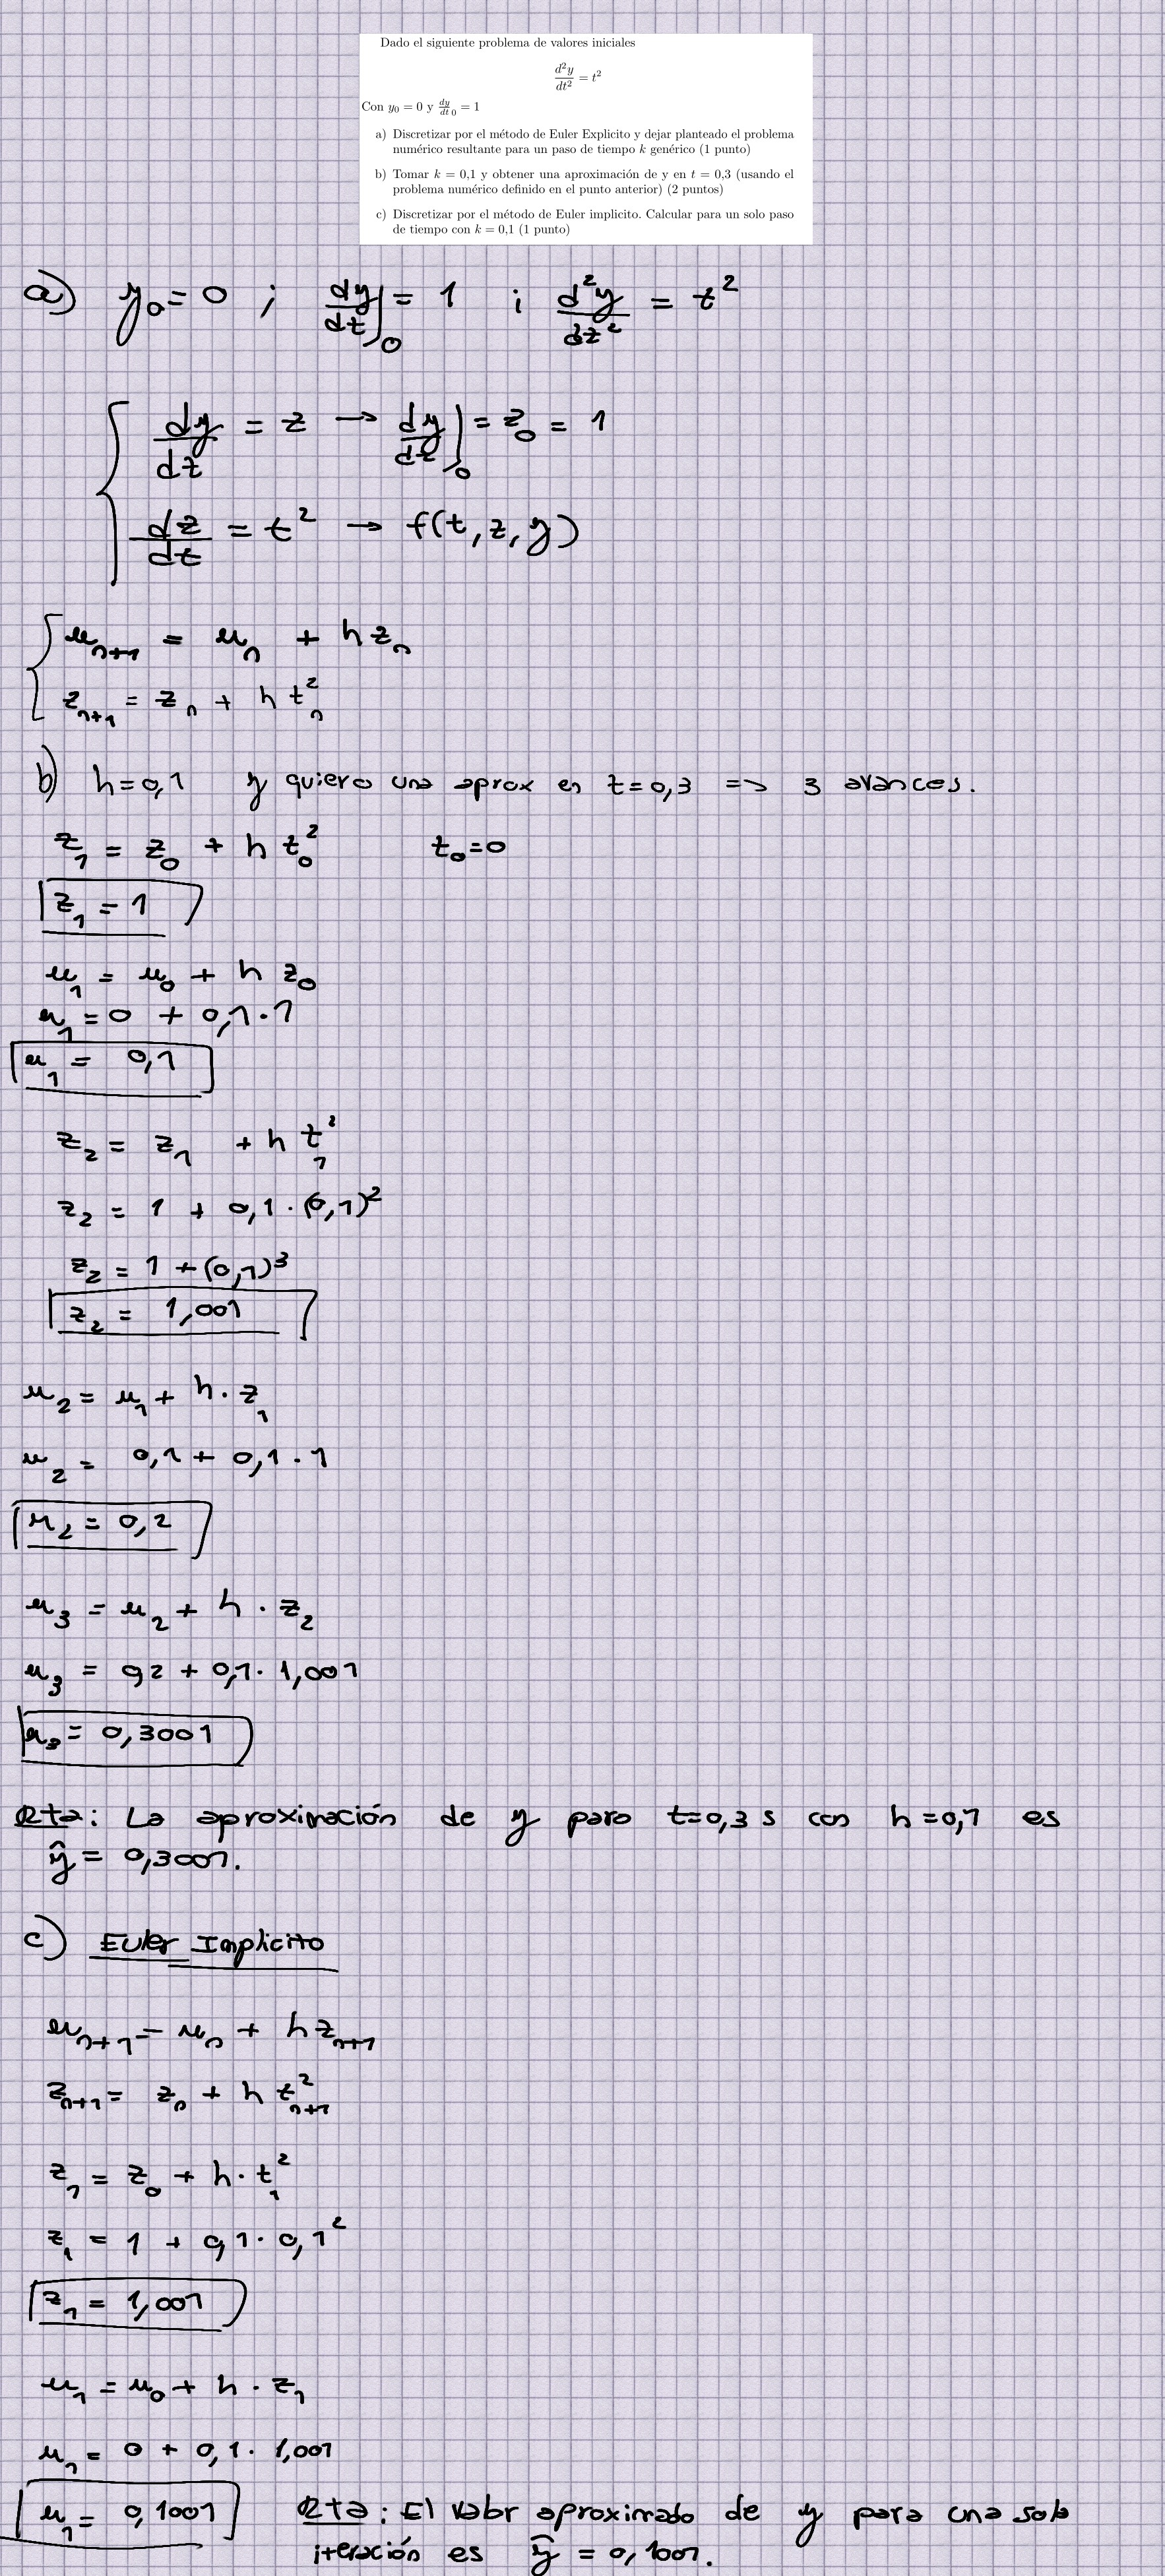 Dado el siguiente problema de valores iniciales
d²y/dt² = t²
Con y₀ = 0 y dy/dt ₀ = 1
a) Discretizar por el método de Euler Explicito y dejar planteado el problema
numérico resultante para un paso de tiempo k genérico (1 punto)
b) Tomar k = 0,1 y obtener una aproximación de y en t = 0,3 (usando el
problema numérico definido en el punto anterior) (2 puntos)
c) Discretizar por el método de Euler implicito. Calcular para un solo paso
de tiempo con k = 0,1 (1 punto)
a) y₀ = 0 ; dy/dt|₀ = 1 ; d²y/dt² = t²
dy/dt = z → dy/dt|₀ = z₀ = 1
dz/dt = t² → f(t, z, y)
uₙ₊₁ = uₙ + h zₙ
zₙ₊₁ = zₙ + h tₙ²
b) h = 0,1 y quiero una aprox en t = 0,3 => 3 avances.
z₁ = z₀ + h t₀² t₀ = 0
z₁ = 1
u₁ = u₀ + h z₀
u₁ = 0 + 0,1 · 1
u₁ = 0,1
z₂ = z₁ + h t₁²
z₂ = 1 + 0,1 · (0,1)²
z₂ = 1 + (0,1)³
z₂ = 1,001
u₂ = u₁ + h · z₁
u₂ = 0,1 + 0,1 · 1
u₂ = 0,2
u₃ = u₂ + h · z₂
u₃ = 0,2 + 0,1 · 1,001
u₃ = 0,3001
Rta: La aproximación de y para t=0,3 s con h=0,1 es
ŷ = 0,3001.
c) Euler Implicito
uₙ₊₁ = uₙ + h zₙ₊₁
zₙ₊₁ = zₙ + h tₙ₊₁²
z₁ = z₀ + h · t₁²
z₁ = 1 + 0,1 · 0,1²
z₁ = 1,001
u₁ = u₀ + h · z₁
u₁ = 0 + 0,1 · 1,001
u₁ = 0,1001 Rta: El valor aproximado de y para una sola
iteración es ŷ = 0,1001.